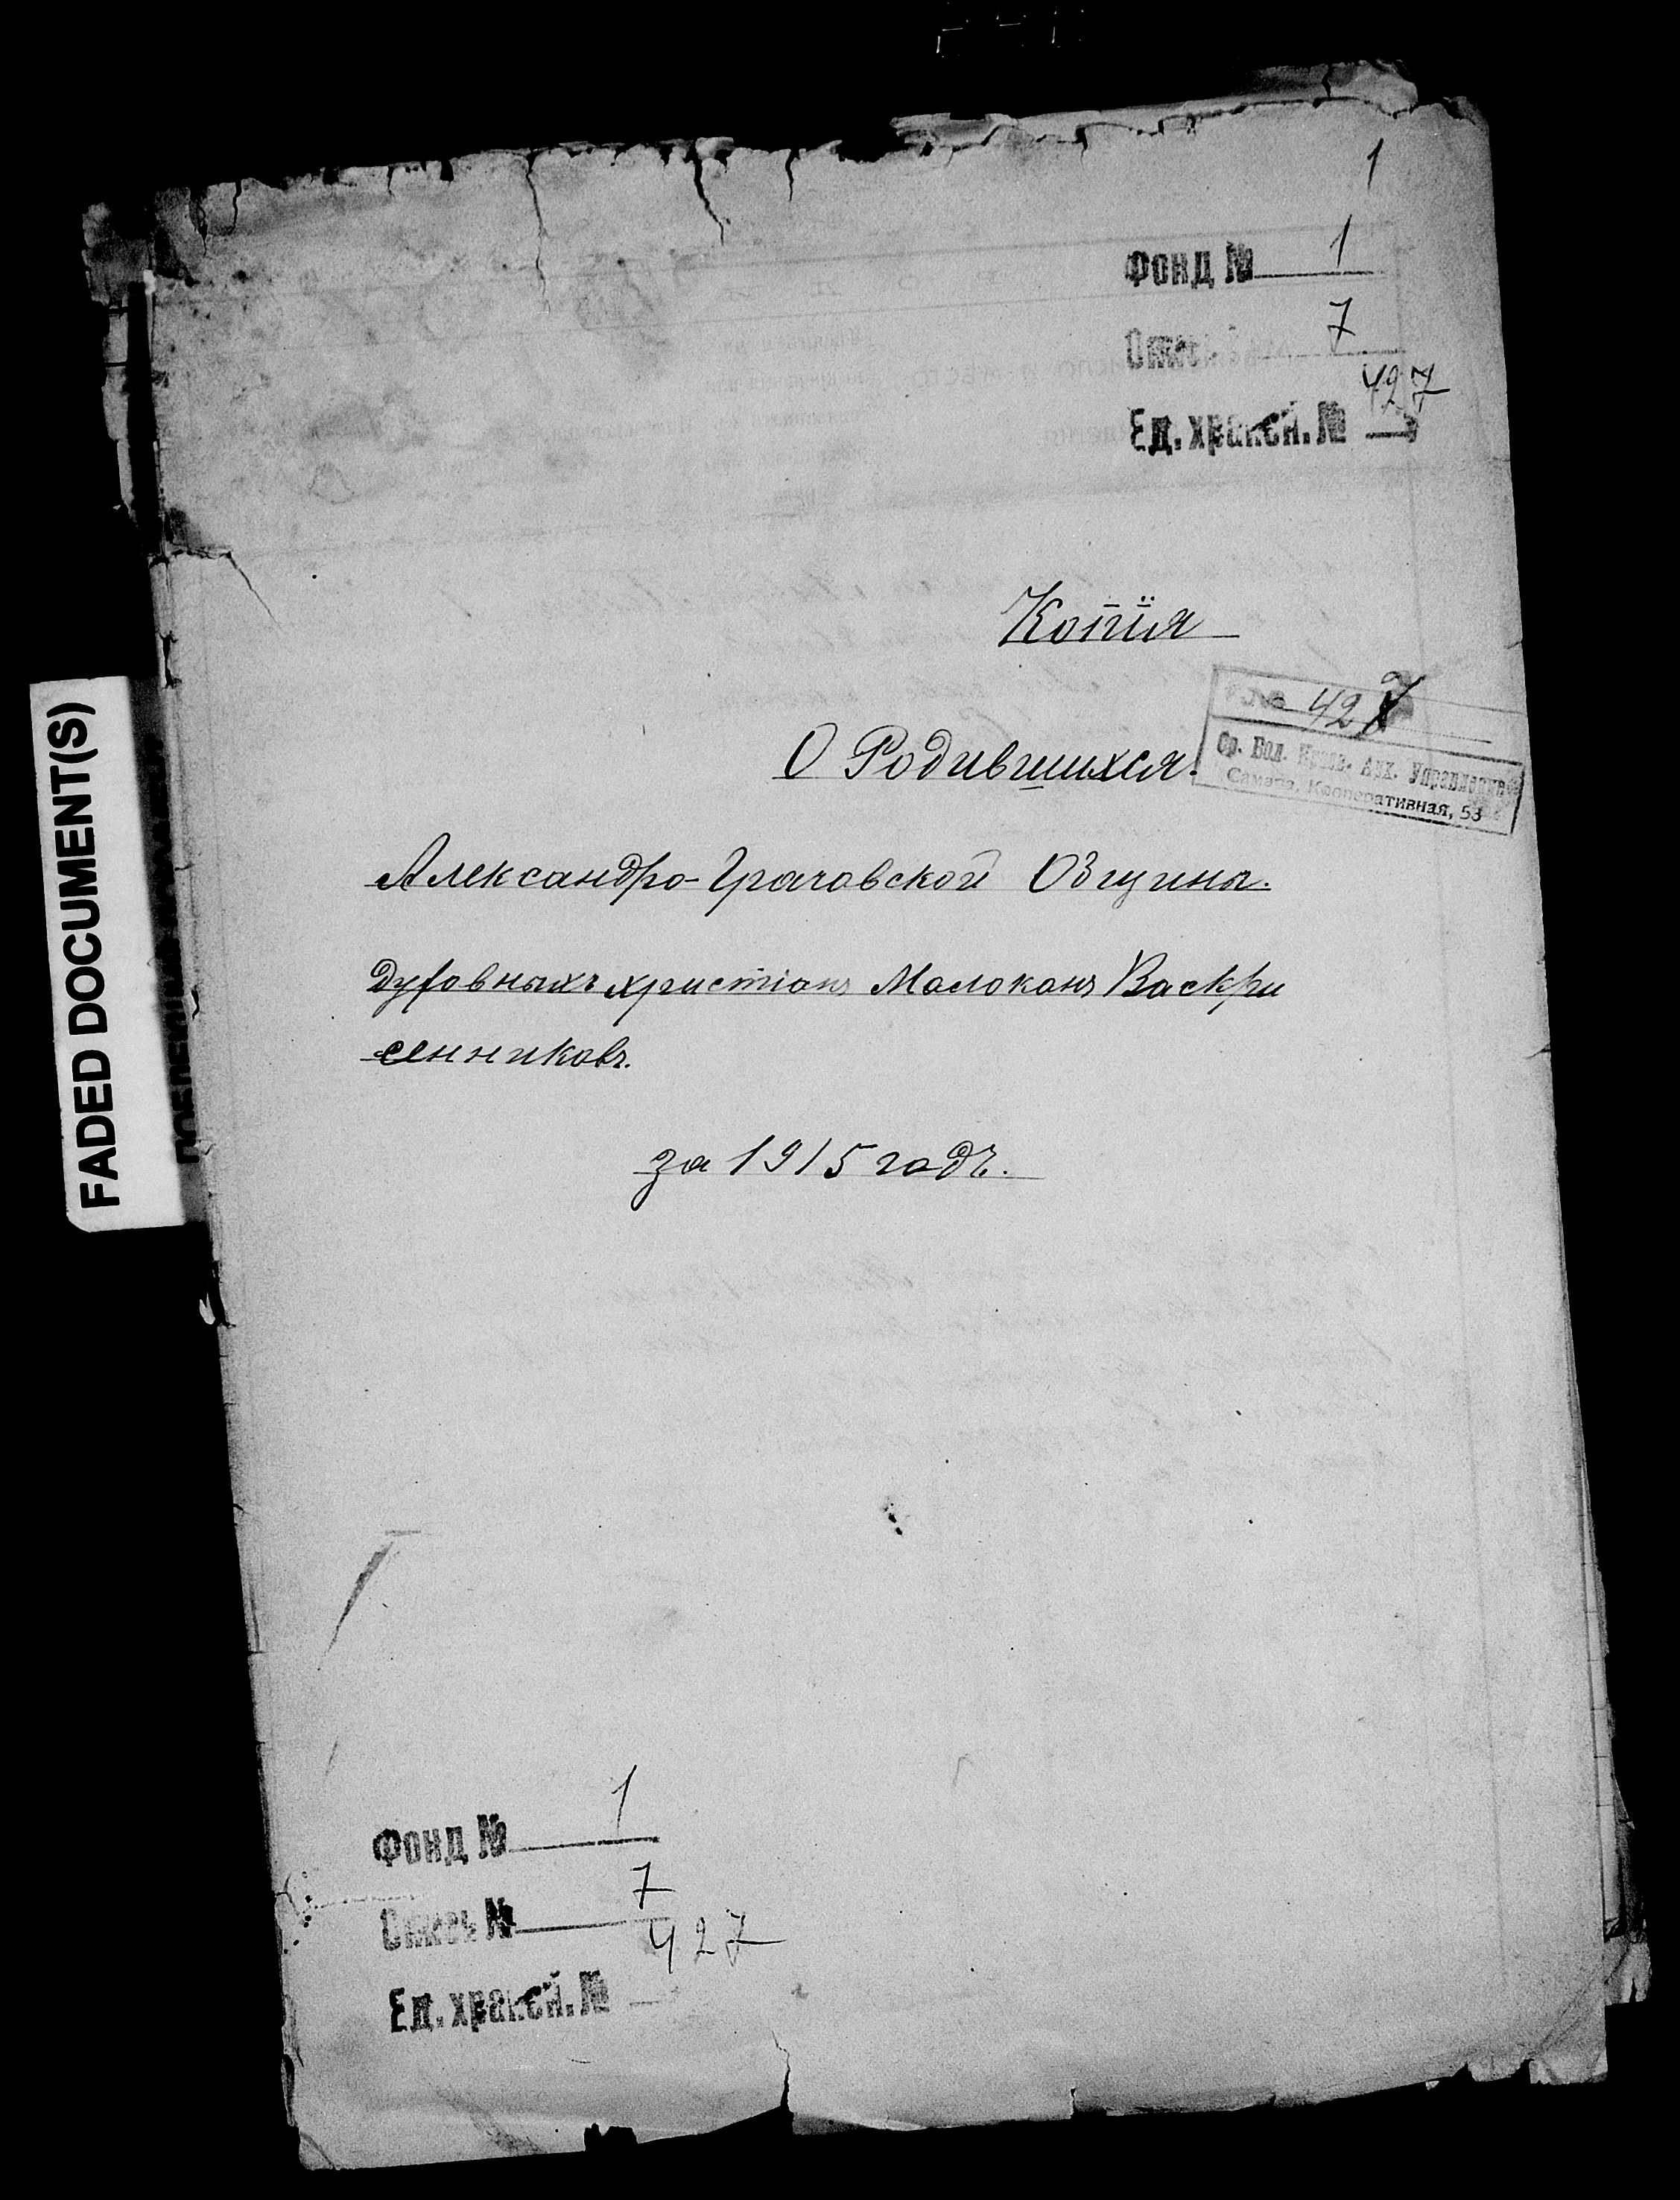 1
Фонд № 1
Опись 7
427
Ед. хранен. №
Копія
№ 427
О Родившихся.
Ср. Вол. Краев. Арх. Управление
Самара, Кооперативная, 53
Александро-Грачовской Общины.
духовныхъ христіанъ Молоканъ Васкри
сенниковъ.
за 1915 годъ.
FADED DOCUMENT(S)
Фонд № 1
Опись № 7
427
Ед. хранен. №